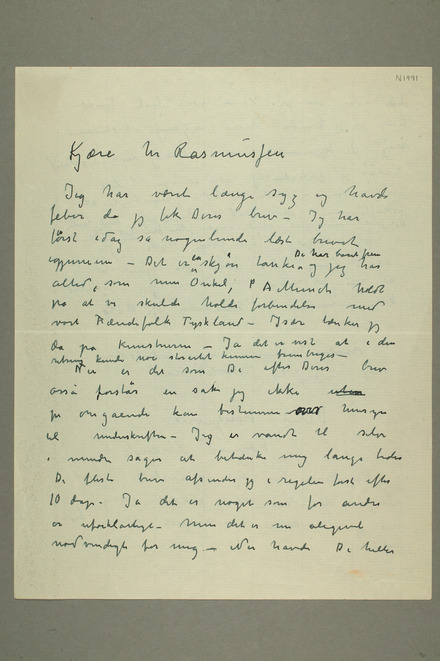 N1991
Kjære Hr Rasmussen
Jeg har været længe syg og havde
feber da jeg fik Deres brev – Jeg har
først idag så nogenlunde læst brevet
igjennem – Det er en skjøn tanke De har og jeg har
altid, som min Onkel, P A Munch holdt
på at vi skulde holde forbindelse med
vort Frændefolk Tyskland – Især tænker jeg
da på kunsten – Ja det er vist at i den
retning kunde noe stort kunne frembringes –
Nu er det som De efter Deres brev
også forstår en sak jeg ikke
per omgående kan bestemme over hensyn
til underskriften – Jeg er vandt til selv
i mindre sager at betænke mig lange tider
De fleste breve afsender jeg i regelen først efter
10 dage – Ja det er noget som for andre
er uforklarligt – men det er nu alligevel
nødvendigt for mig – Nu havde De heller